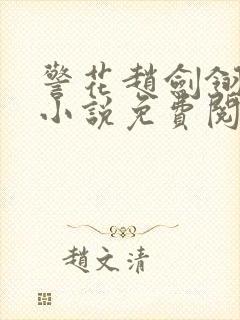 警花趙劍釵
小說免費閱
趙文清